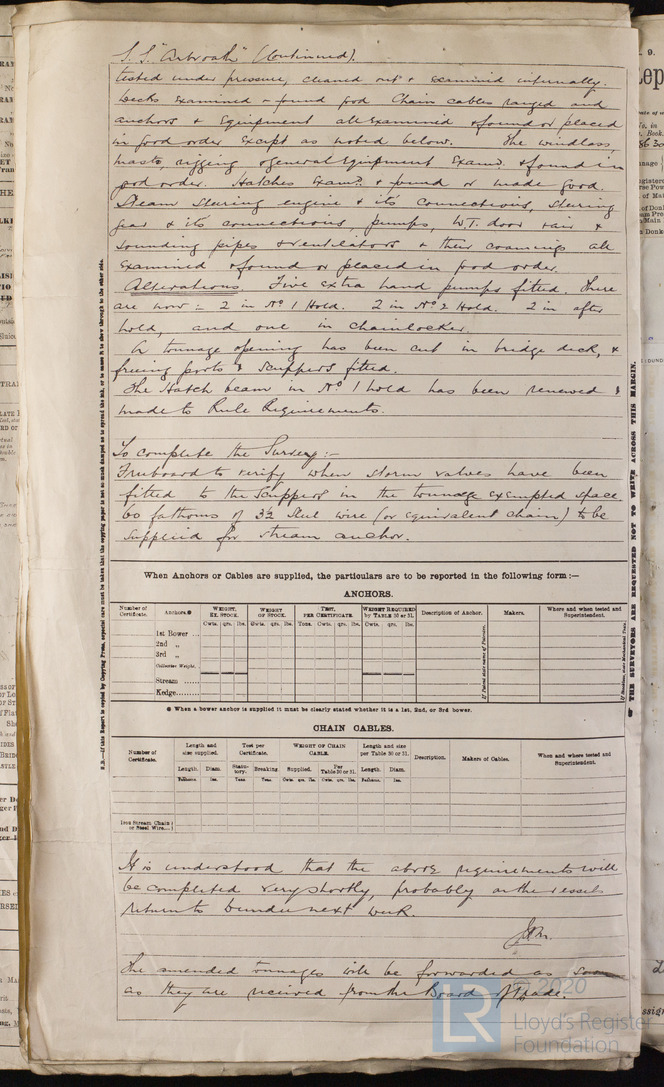 S.S. "Arbroath" (Continued).
tested under pressure, cleaned out & examined internally.
Decks examined & found good Chain cables ranged and
anchors & Equipment all examined & found or placed
in good order Except as noted below. The windlass,
masts, rigging & general Equipment Examd. & found in
good order. Hatches Examd. & found or made good.
Steam steering engine & its connections, steering
gear & its connections, pumps, W.T. door, air &
sounding pipes & ventilators & their coamings all
examined & found or placed in good order.
Alterations. Five extra hand pumps fitted. There
are now :- 2 in No 1 Hold. 2 in No 2 Hold. 2 in after
hold, and one in chainlocker.
A tonnage opening has been cut in bridge deck, &
freeing ports & scuppers fitted.
The Hatch beam in No 1 hold has been renewed &
made to Rule Requirements.
To complete the Survey :-
Freeboard to verify when storm valves have been
fitted to the scuppers in the tonnage exempted space
60 fathoms of 3½ Steel wire (or equivalent chain) to be
supplied for stream anchor.
When Anchors or Cables are supplied, the particulars are to be reported in the following form :—
ANCHORS.
Number of Certificate. Anchors.* WEIGHT. EX. STOCK. WEIGHT OF STOCK. TEST, PER CERTIFICATE. WEIGHT REQUIRED by TABLE 30 or 31. Description of Anchor. Makers. Where and when tested and Superintendent.
Cwts. qrs. lbs. Cwts. qrs. lbs. Tons. Cwts. qrs. lbs. Cwts. qrs. lbs.
1st Bower ...
2nd „
3rd „
Collective Weight.
Stream ......
Kedge........
* When a bower anchor is supplied it must be clearly stated whether it is a 1st, 2nd, or 3rd bower.
CHAIN CABLES.
Number of Certificate. Length and size supplied. Test per Certificate. WEIGHT OF CHAIN CABLE. Length and size per Table 30 or 31. Description. Makers of Cables. When and where tested and Superintendent.
Length. Diam. Statutory. Breaking Supplied. Per Table 30 or 31. Length. Diam.
Fathoms. Ins. Tons. Tons. Cwts. qrs. lbs. Cwts. qrs. lbs. Fathoms. Ins.
Iron Stream Chain or Steel Wire...
It is understood that the above requirements will
be completed very shortly, probably on the vessels
return to Dundee next week.
The amended tonnages will be forwarded as soon
as they are received from the Board of Trade.
THE SURVEYORS ARE REQUESTED NOT TO WRITE ACROSS THIS MARGIN.
© 2020
LR
Lloyd's Register
Foundation